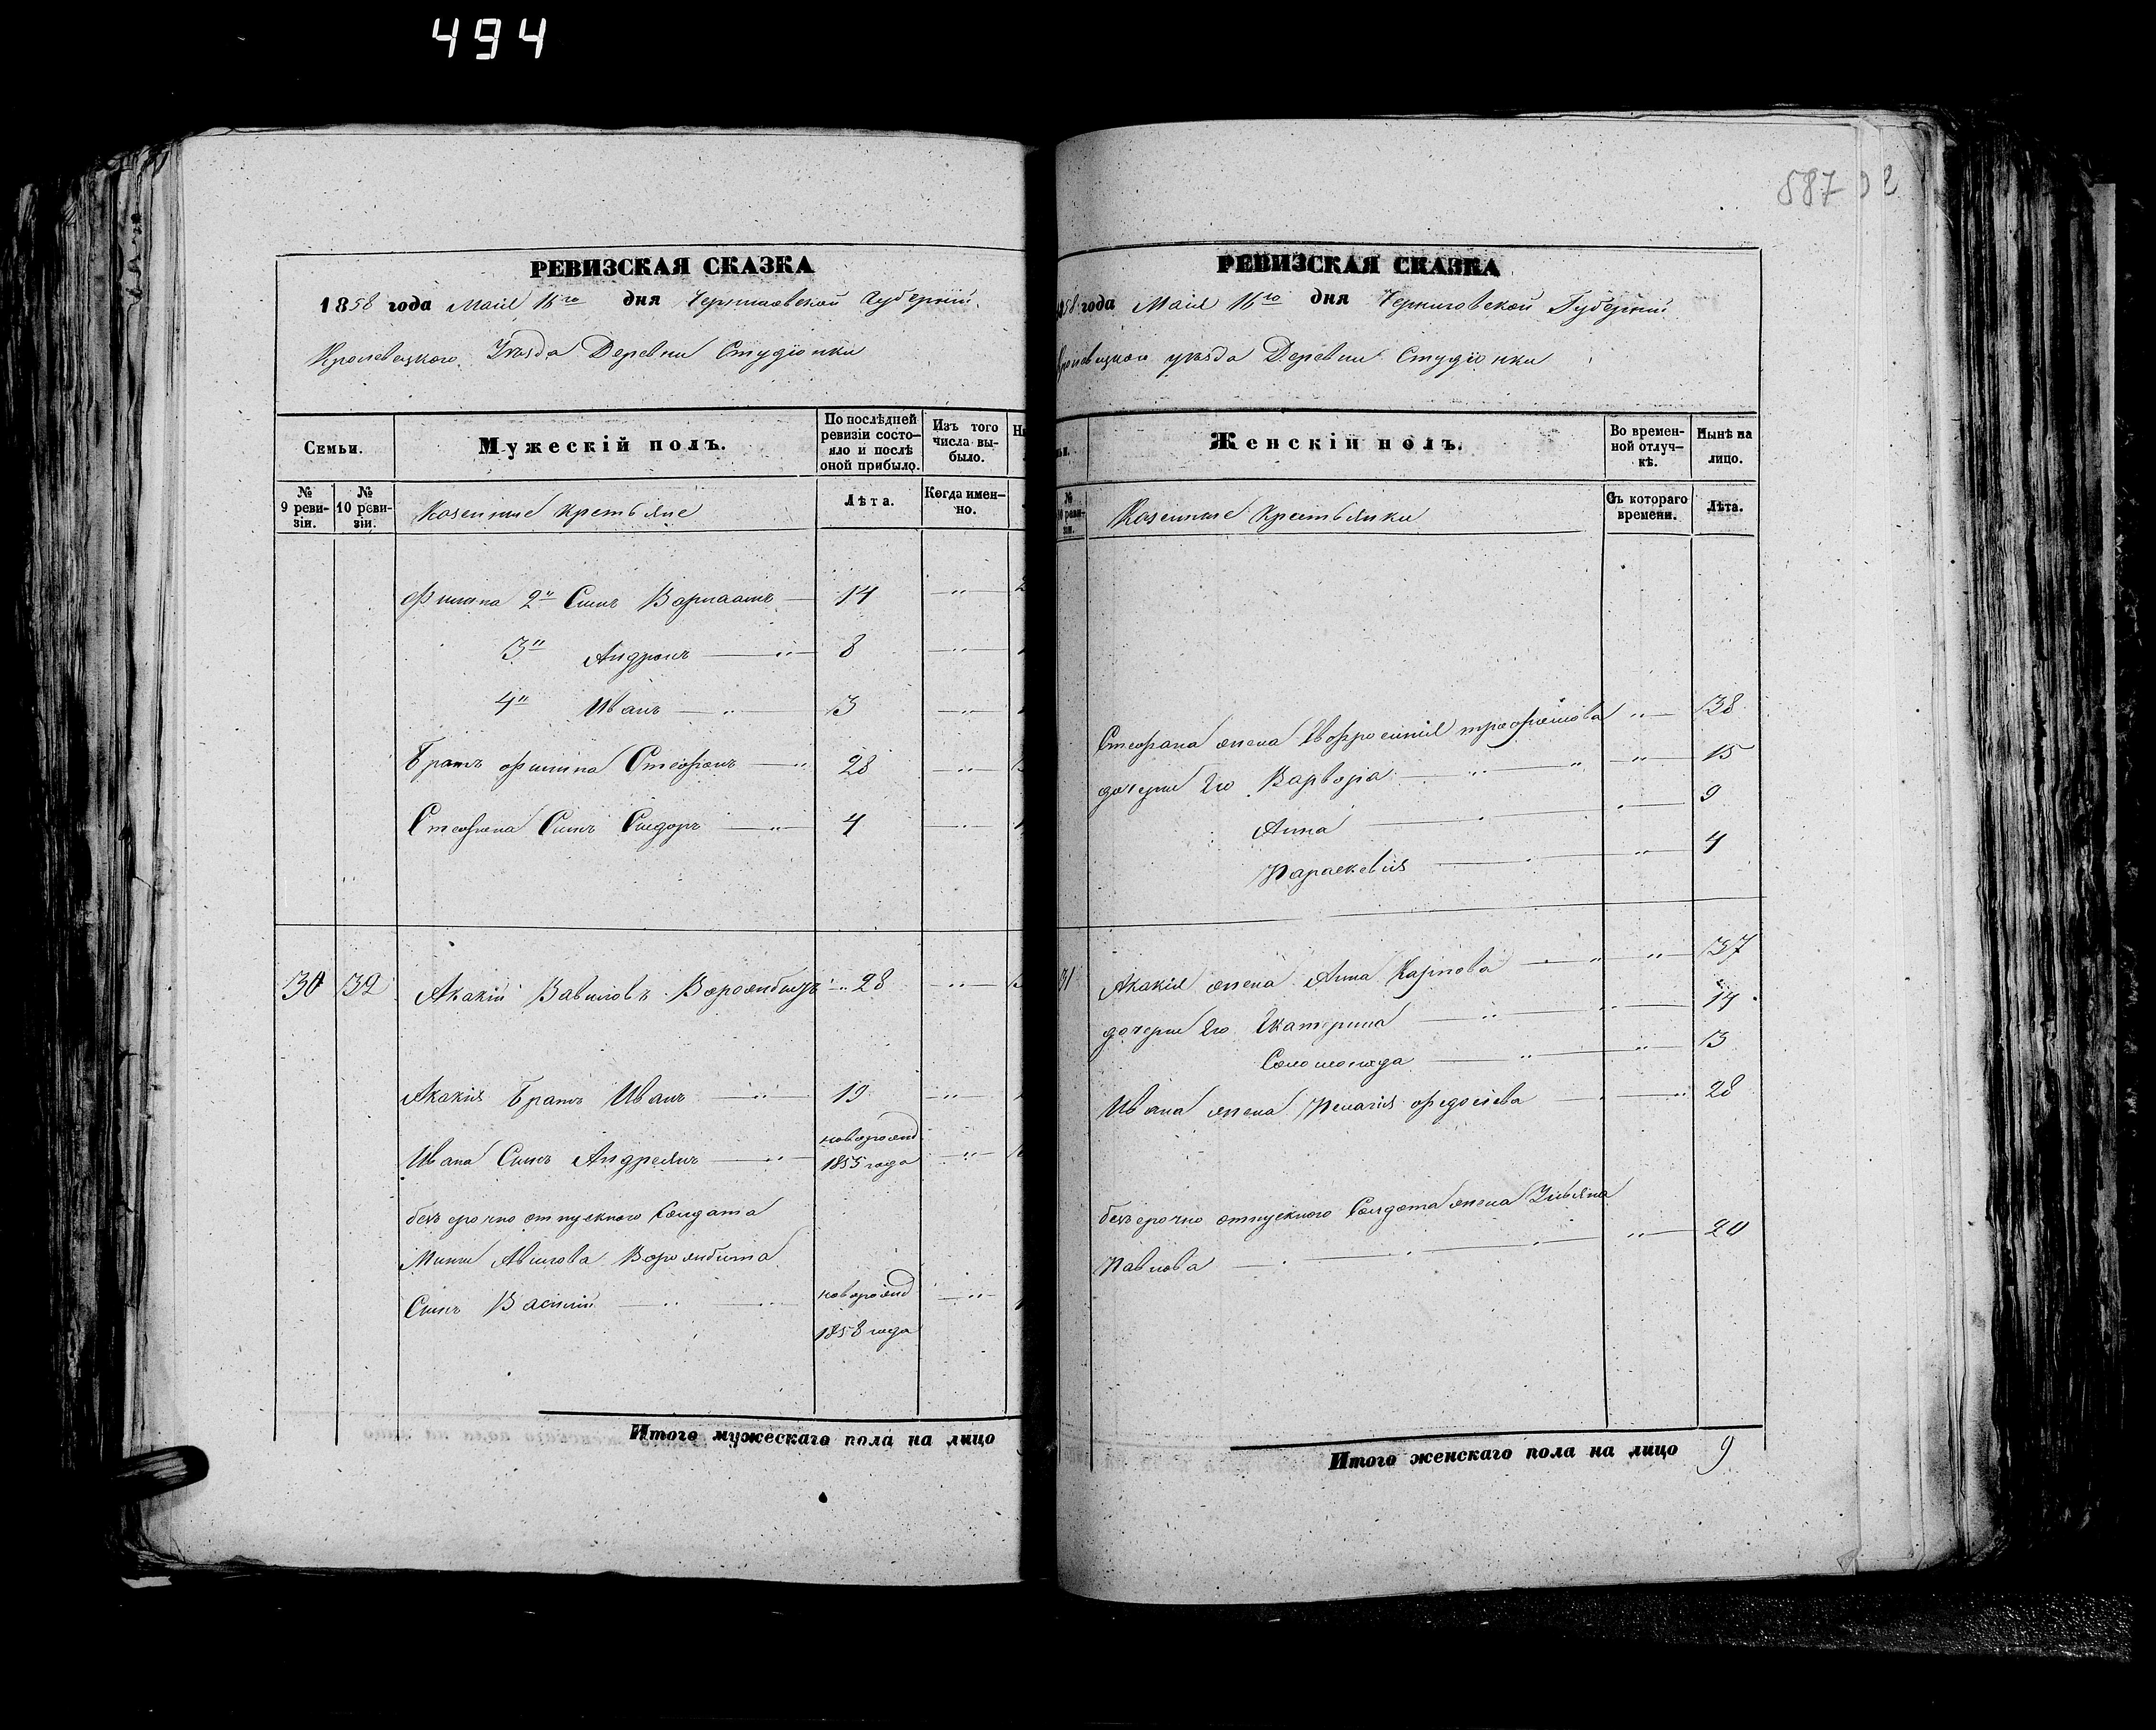 494
РЕВИЗСКАЯ СКАЗКА
1858 года Маія 16го дня Черниговской Губерніи
Кролевецкого Уезда Деревни Студіонки
Семьи.
Мужескій полъ.
По послѣдней ревизіи состояло и послѣ оной прибыло.
Изъ того числа выбыло.
№ 9 ревизіи.
№ 10 ревизіи.
Казенные крестьяне
Лѣта.
Когда именно.
Филипа 2й Сынъ Варлаамъ 14
3й Андронъ 8
4й Иванъ 3
Братъ Филипа Стефанъ 28
Стефана Сынъ Сидоръ 4
30 32 Акакій Вавиловъ 28
Акакія Братъ Иванъ 19
Ивана Сынъ Андреянъ новорожд 1855 года
безсрочно отпускного Солдата
Мини Авилова
Сынъ Василій новорожд 1858 года
Итого мужескаго пола на лицо
587
РЕВИЗСКАЯ СКАЗКА
58 года Маія 16го дня Черниговской Губерніи
уезда Деревни Студіонки
Женскій полъ.
Во временной отлучкѣ.
Нынѣ на лицо.
№
Казенные крестьянки
Съ котораго времени.
Лѣта.
Стефана жена Евфросинія Трофимова 38
дочери Его Варвара 15
Анна 9
Параскевія 4
31 Акакія жена Анна Карпова 37
дочери Его Екатерина 14
Соломонида 3
Ивана жена Пелагія Федосіева 28
безсрочно отпускного Солдата жена Ульяна
Павлова 20
Итого женскаго пола на лицо 9